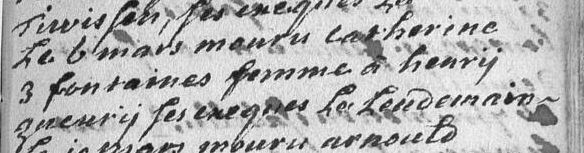 ses exeques le
Le 6 mars mouru catherine
3 fontaines femme à henrij
ses exeques le Lendemain~
mars mouru arnould